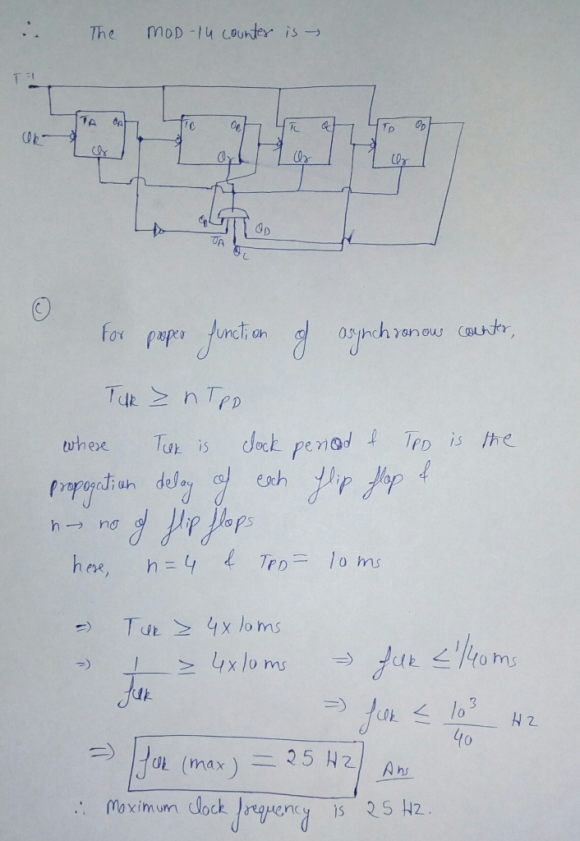 ∴ The MOD-14 counter is →
T=1
TA QA TB QB TC QC TD QD
Clk Clr Clr Clr Clr
QB QD
Q̅A QC
(C)
For proper function of asynchronous counter,
Tclk ≥ n TPD
where Tclk is clock period & TPD is the
propogation delay of each flip flop &
n → no of flip flops
here, n = 4 & TPD = 10 ms
⇒ Tclk ≥ 4x10ms
⇒ 1/fclk ≥ 4x10ms ⇒ fclk ≤ 1/40ms
⇒ fclk ≤ 10³/40 Hz
⇒ fclk (max) = 25 HZ Ans
∴ Maximum clock frequency is 25 HZ.